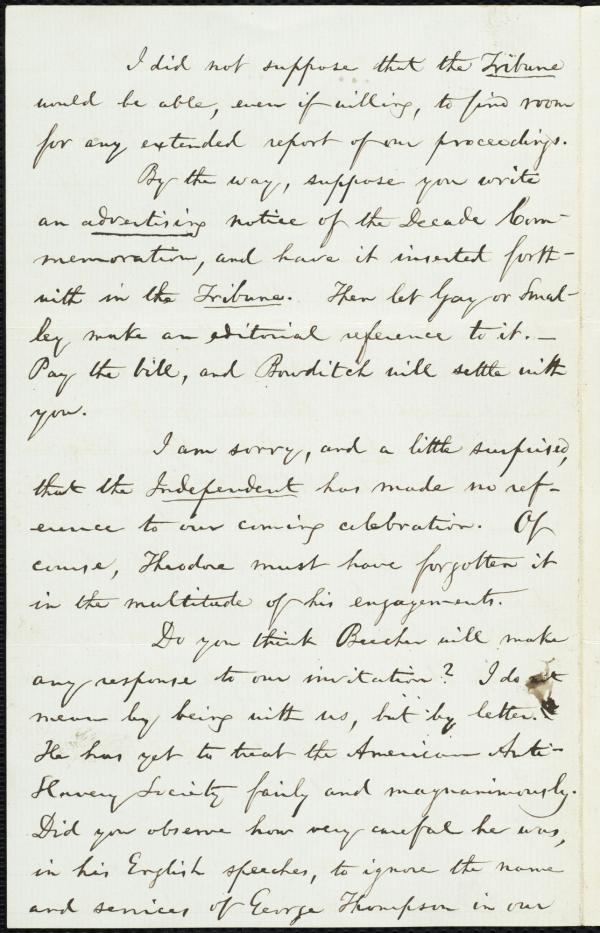 I did not suppose that the Tribune
would be able, even if willing, to find room
for any extended report of our proceedings.
By the way, suppose you write
an advertising notice of the Decade Com-
memoration, and have it inserted forth-
with in the Tribune. Then let Gay or Smal-
ley make an editorial reference to it. —
Pay the bill, and Bowditch will settle with
you.
I am sorry, and a little surprised,
that the Independent has made no ref-
erence to our coming celebration. Of
course, Theodore must have forgotten it
in the multitude of his engagements.
Do you think Beecher will make
any response to our invitation? I do not
mean by being with us, but by letter.
He has yet to treat the American Anti-
Slavery Society fairly and magnanimously.
Did you observe how very careful he was,
in his English speeches, to ignore the name
and services of George Thompson in our